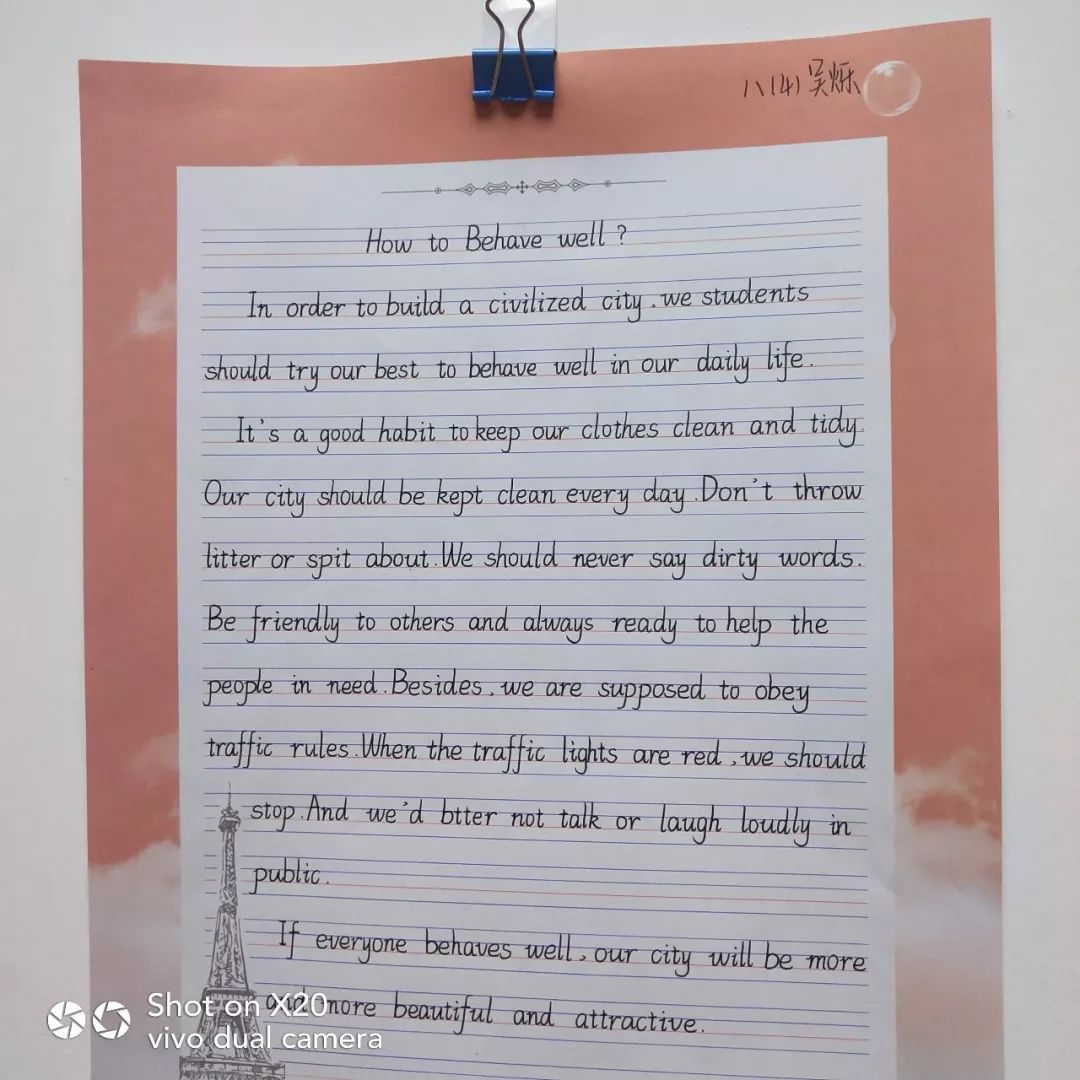 八(4) 吴烁
How to Behave well ?
In order to build a civilized city , we students
should try our best to behave well in our daily life.
It's a good habit to keep our clothes clean and tidy.
Our city should be kept clean every day. Don't throw
litter or spit about. We should never say dirty words.
Be friendly to others and always ready to help the
people in need. Besides, we are supposed to obey
traffic rules. When the traffic lights are red, we should
stop. And we'd btter not talk or laugh loudly in
public.
If everyone behaves well, our city will be more
and more beautiful and attractive.
Shot on X20
vivo dual camera